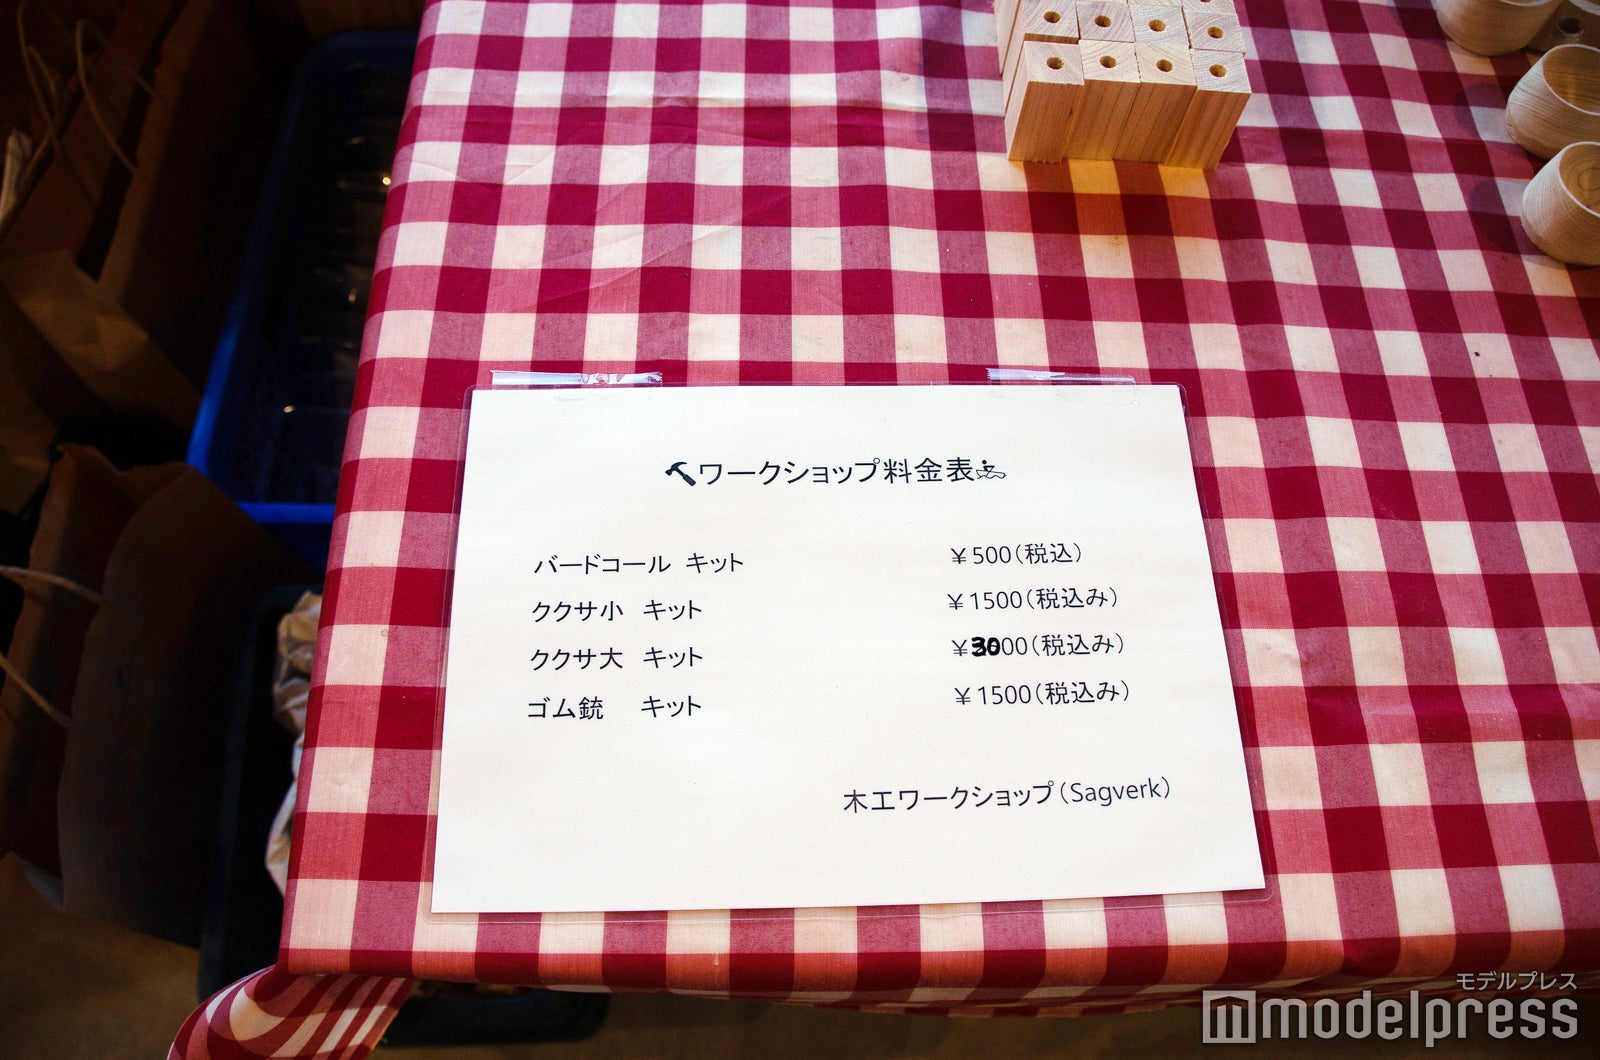 ワークショップ料金表
バードコール キット ￥500（税込）
ククサ小 キット ￥1500（税込み）
ククサ大 キット ￥3000（税込み）
ゴム銃 キット ￥1500（税込み）
木工ワークショップ（Sagverk）
モデルプレス
modelpress